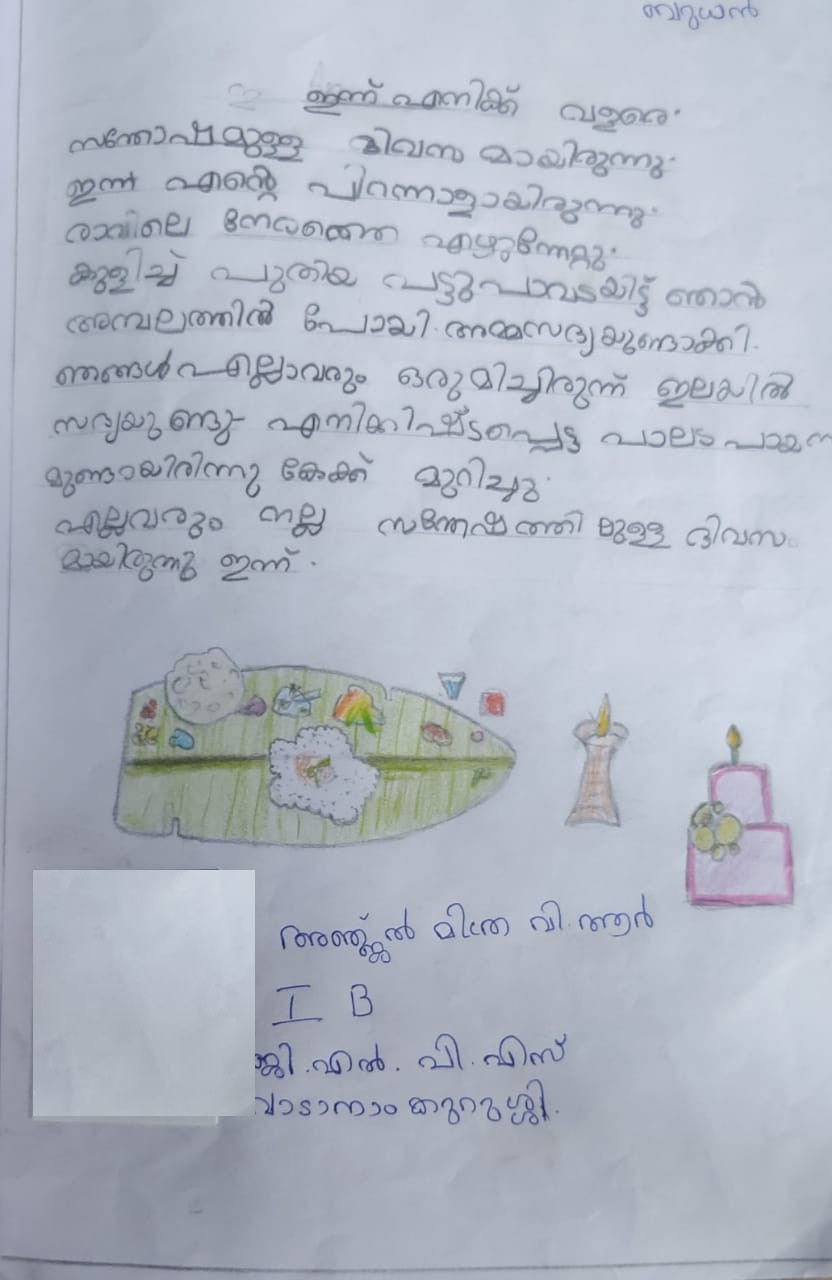 ബുധൻ
ഇന്ന് എനിക്ക് വളരെ.
സന്തോഷമുള്ള ദിവസ മായിരുന്നു.
ഇന്ന് എന്റെ പിറന്നാളായിരുന്നു.
രാവിലെ നേരത്തെ എഴുന്നേറ്റു.
കുളിച്ച് പുതിയ പട്ടുപാവടയിട്ട് ഞാൻ
അമ്പലത്തിൽ പോയി. അമ്മസദ്യയുണ്ടാക്കി.
ഞങ്ങൾ എല്ലാവരും ഒരുമിച്ചിരുന്ന് ഇലയിൽ
സദ്യയുണ്ടു എനിക്കിഷ്ടപ്പെട്ട പാലട പായസ
മുണ്ടായിരിന്നു കേക്ക് മുറിച്ചു.
എല്ലവരും നല്ല സന്തേഷത്തി ലുള്ള ദിവസ
മായിരുന്നു ഇന്ന്.
വി. ആർ
I B
ജി. എൽ. പി. എസ്
വാടാനാംകുറുശ്ശി.